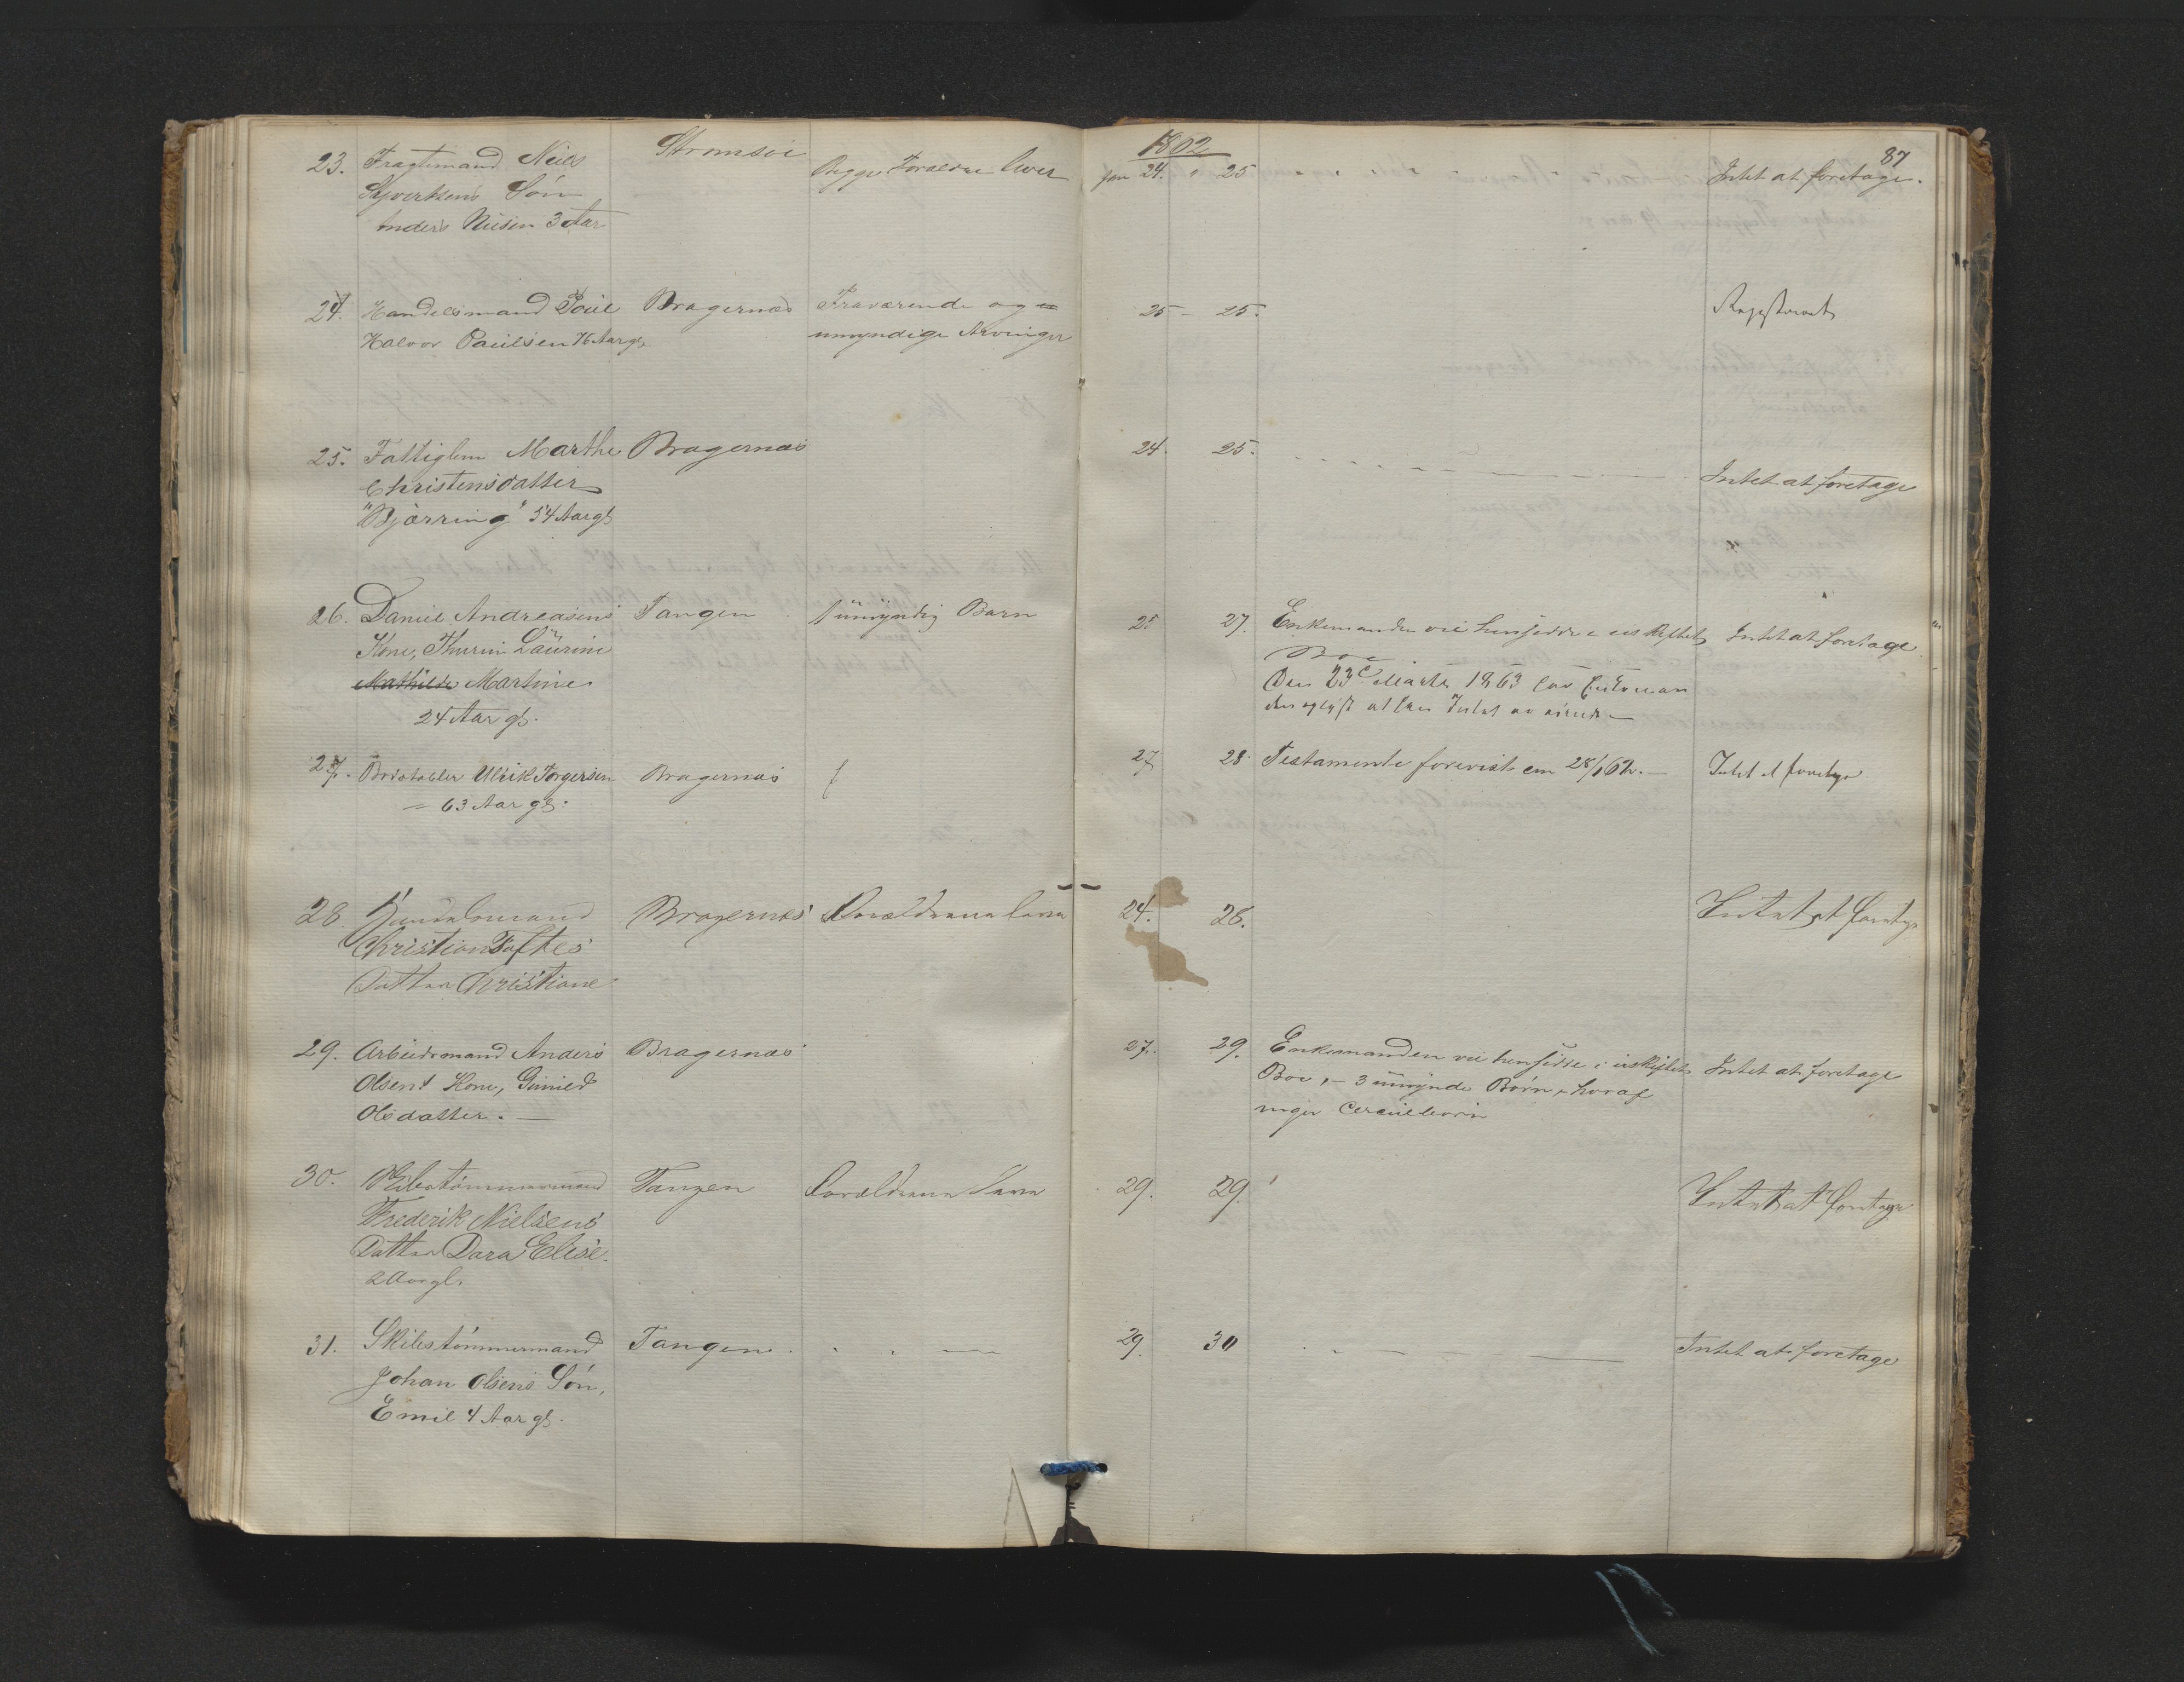 1862
87
23. Fragtmand Niels Strömsöe Begge Forældre lever Jan 24. " 25 Intet at foretage.
Syvertsens Sön
Anders Nilsen 3 Aar
24. Handelsmand Poul Bragernæs Fraværende og 25 - 25. Registreret
Halvor Paulsen 76 Aar gl. umyndige Arvinger
25. Fattiglem Marthe Bragernæs 24. 25. Intet at foretage
Christensdatter
"Bjørring" 54 Aar gl.
26. Daniel Andreasens Tangen 1 umyndig Barn 25 27. Enkemanden vil hensidde i uskiftet Intet at foretage
Kone, Thurine Laurine Boe
Mathilde Martine Den 23de Marts 1863 har Enkeman
24 Aar gl. den oplyst at han Intet
27. Ulrik Torgersen Bragernæs 27 28. Testamente forevist em 28/1 62. Intet at foretage
63 Aar gl.
28 Handelsmand Bragernæs Forældrene leve 24. 26. Intet at foretage
Christian Toftes
Datter Christiane
29. Arbeidsmand Anders Bragernæs 27. 29. Enkemanden vil hensidde i uskiftet Intet at foretage
Olsens Kone, Gunild Boe, - 3 umynde Börn, hvoraf
Olsdatter. ingen
30. Skibstömmermand Tangen Forældrene leve 29. 29. Intet at foretage
Frederik Nielsens
Datter Dara Elise.
2 Aar gl.
31. Skibstömmermand Tangen 29. 30 Intet at foretage
Johan Olsens Sön,
Emil 4 Aar gl.